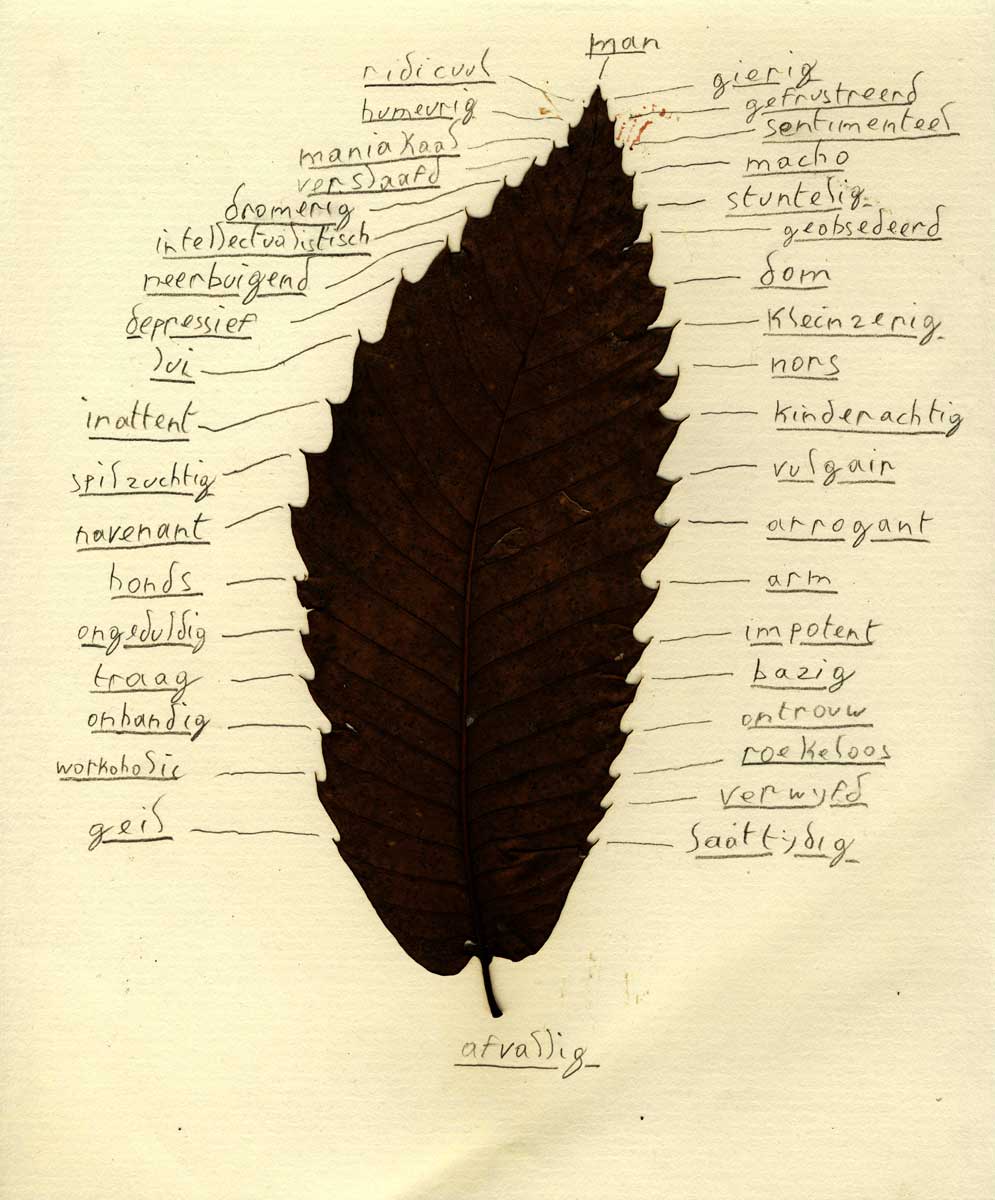 man
ridicuul
humeurig
maniakaal
verslaafd
dromerig
intellectualistisch
neerbuigend
depressief
lui
inattent
spilzuchtig
navenant
honds
ongeduldig
traag
onhandig
workoholic
geil
gierig
gefrustreerd
sentimenteel
macho
stuntelig
geobsedeerd
dom
kleinzerig
nors
kinderachtig
vulgair
arrogant
arm
impotent
bazig
ontrouw
roekeloos
verwijfd
laattijdig
afvallig